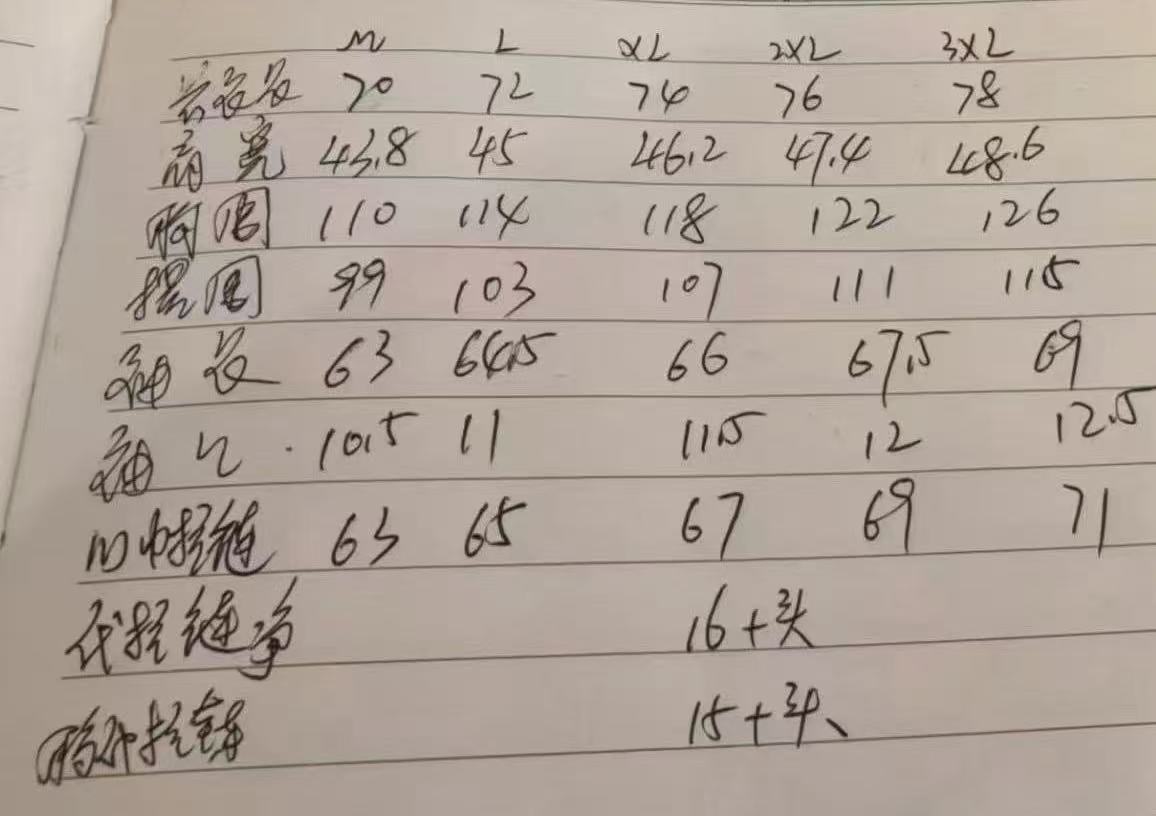 M L XL 2XL 3XL
后衣长 70 72 74 76 78
肩宽 43.8 45 46.2 47.4 48.6
胸围 110 114 118 122 126
摆围 99 103 107 111 115
袖长 63 64.5 66 67.5 69
袖口 10.5 11 11.5 12 12.5
门巾拉链 63 65 67 69 71
代拉链净 16+头
拉链 15+头